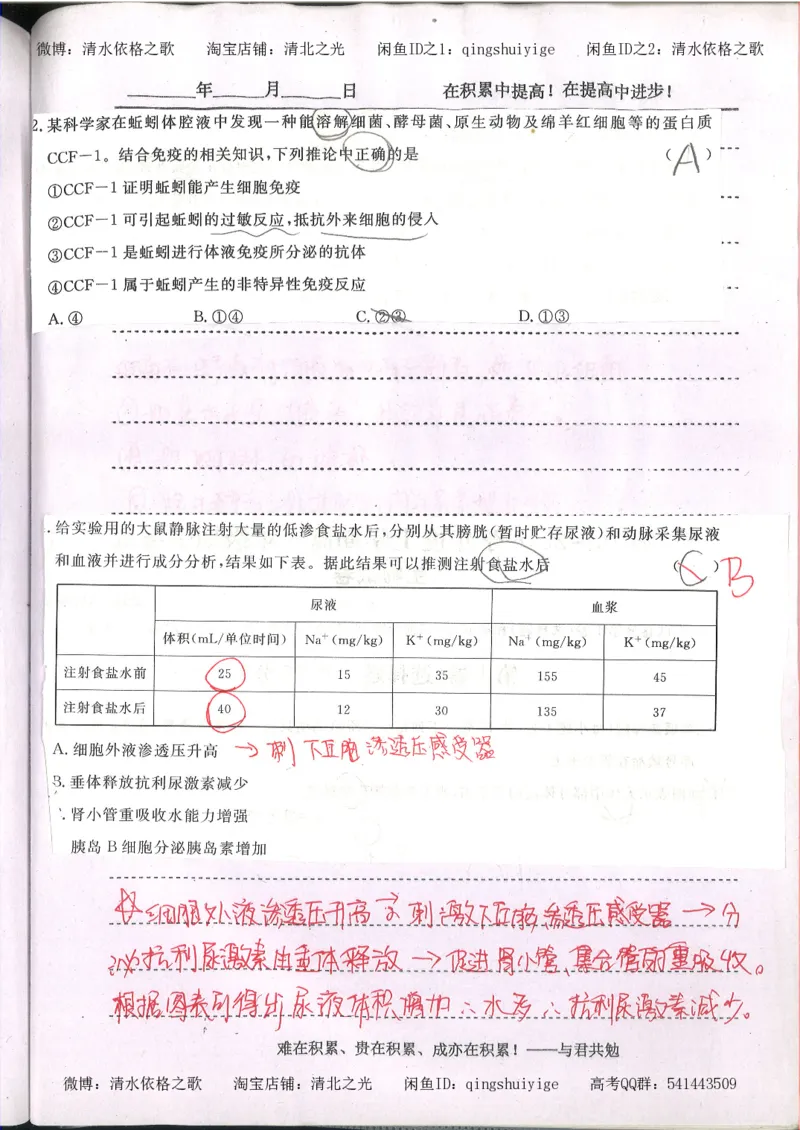 微博：清水依格之歌 淘宝店铺：清北之光 闲鱼ID之1：qingshuiyige 闲鱼ID之2：清水依格之歌
______年______月______日 在积累中提高！在提高中进步！
2.某科学家在蚯蚓体腔液中发现一种能溶解细菌、酵母菌、原生动物及绵羊红细胞等的蛋白质
CCF－1。结合免疫的相关知识，下列推论中正确的是 （A）
①CCF－1证明蚯蚓能产生细胞免疫
②CCF－1可引起蚯蚓的过敏反应，抵抗外来细胞的侵入
③CCF－1是蚯蚓进行体液免疫所分泌的抗体
④CCF－1属于蚯蚓产生的非特异性免疫反应
A.④ B.①④ C.②③ D.①③
给实验用的大鼠静脉注射大量的低渗食盐水后，分别从其膀胱（暂时贮存尿液）和动脉采集尿液
和血液并进行成分分析，结果如下表。据此结果可以推测注射食盐水后 （C） B
尿液 血浆
体积(mL/单位时间) Na⁺(mg/kg) K⁺(mg/kg) Na⁺(mg/kg) K⁺(mg/kg)
注射食盐水前 25 15 35 155 45
注射食盐水后 40 12 30 135 37
A.细胞外液渗透压升高 →刺下丘脑渗透压感受器
B.垂体释放抗利尿激素减少
.肾小管重吸收水能力增强
胰岛B细胞分泌胰岛素增加
细胞外液渗透压升高→刺激下丘脑渗透压感受器→分
泌抗利尿激素由垂体释放→促进肾小管、集合管重吸收。
根据图表可得出尿液体积增加∴水多∴抗利尿激素减少。
难在积累、贵在积累、成亦在积累！——与君共勉
微博：清水依格之歌 淘宝店铺：清北之光 闲鱼ID：qingshuiyige 高考QQ群：541443509